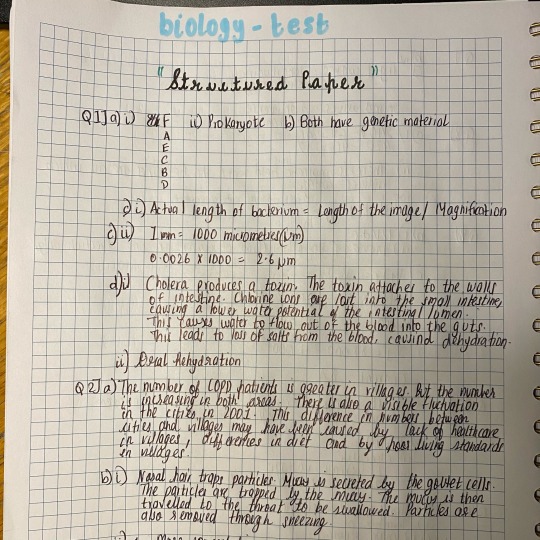 biology - test
"Structured Paper"
Q1]a) i) F ii) Prokaryote b) Both have genetic material
A
E
C
B
D
c) i) Actual length of bacterium = Length of the image / Magnification
c) ii) 1mm = 1000 micrometres (µm)
0.0026 x 1000 = 2.6 µm
d) i) Cholera produces a toxin. The toxin attaches to the walls
of intestine. Chlorine ions are lost into the small intestine,
causing a lower water potential of the intestinal lumen.
This causes water to flow out of the blood into the guts.
This leads to loss of salts from the blood, causind dehydration.
ii) Oral Rehydration
Q2]a) The number of COPD patients is greater in villages. But the number
is increasing in both areas. There is also a visible fluctuation
in the cities in 2001. This difference in numbers between
cities and villages may have been caused by lack of healthcare
in villages, differences in diet and by poor living standards
in villages.
b) i) Nasal hair traps particles. Mucus is secreted by the goblet cells.
The particles are trapped by the mucus. The mucus is then
travelled to the throat to be swallowed. Particles are
also removed through sneezing.